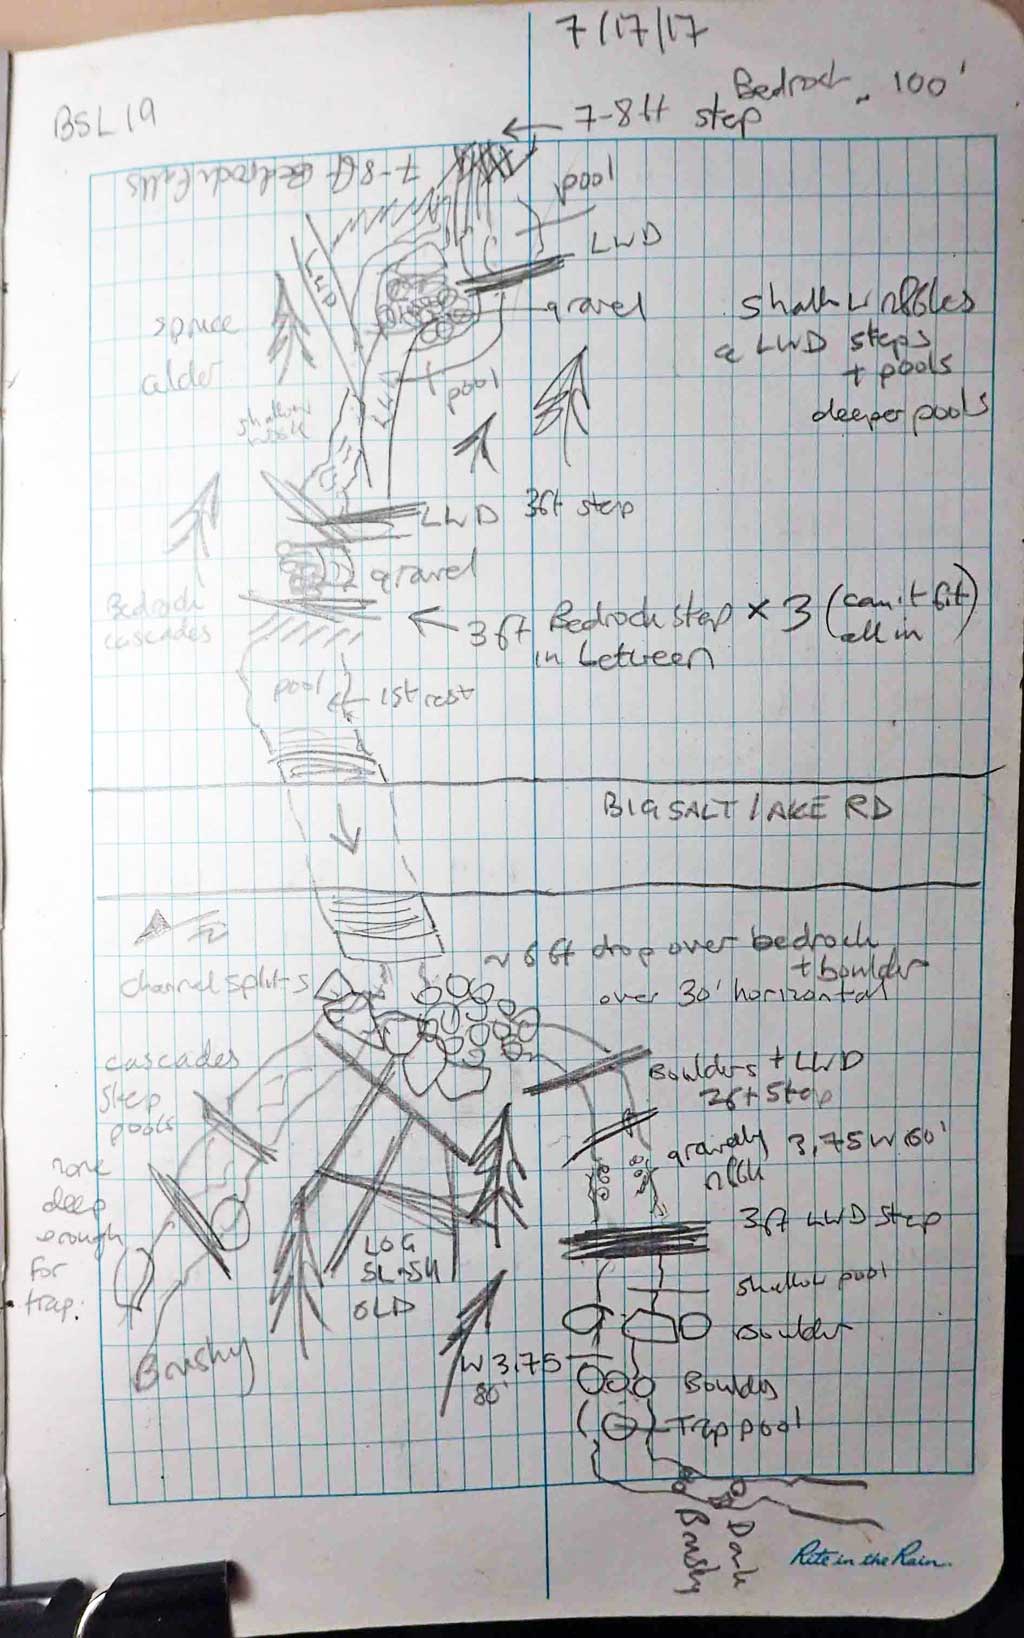 7/17/17
BSL19
Bedrock ~ 100'
← 7-8ft step
7-8ft Bedrock falls
pool
LWD
LWD
gravel
spruce
alder
shallow riffles
LWD steps
+ pools
deeper pools
pool
shallow
LWD 3ft step
gravel
Bedrock
cascades
← 3ft Bedrock step x 3 (can't fit
all in
in between
pool
1st rest
BIG SALT LAKE RD
N
channel splits
~ 6 ft drop over bedrock
+ boulder
over 30' horizontal
cascades
step
pools
none
deep
enough
for
trap.
Boulders + LWD
3ft step
gravelly 3.75 W 60'
riffle
3ft LWD step
LOG
SLASH
OLD
shallow pool
Boulder
Brushy
W 3.75
80'
Boulders
Trap pool
Dark
Brushy
Rite in the Rain.